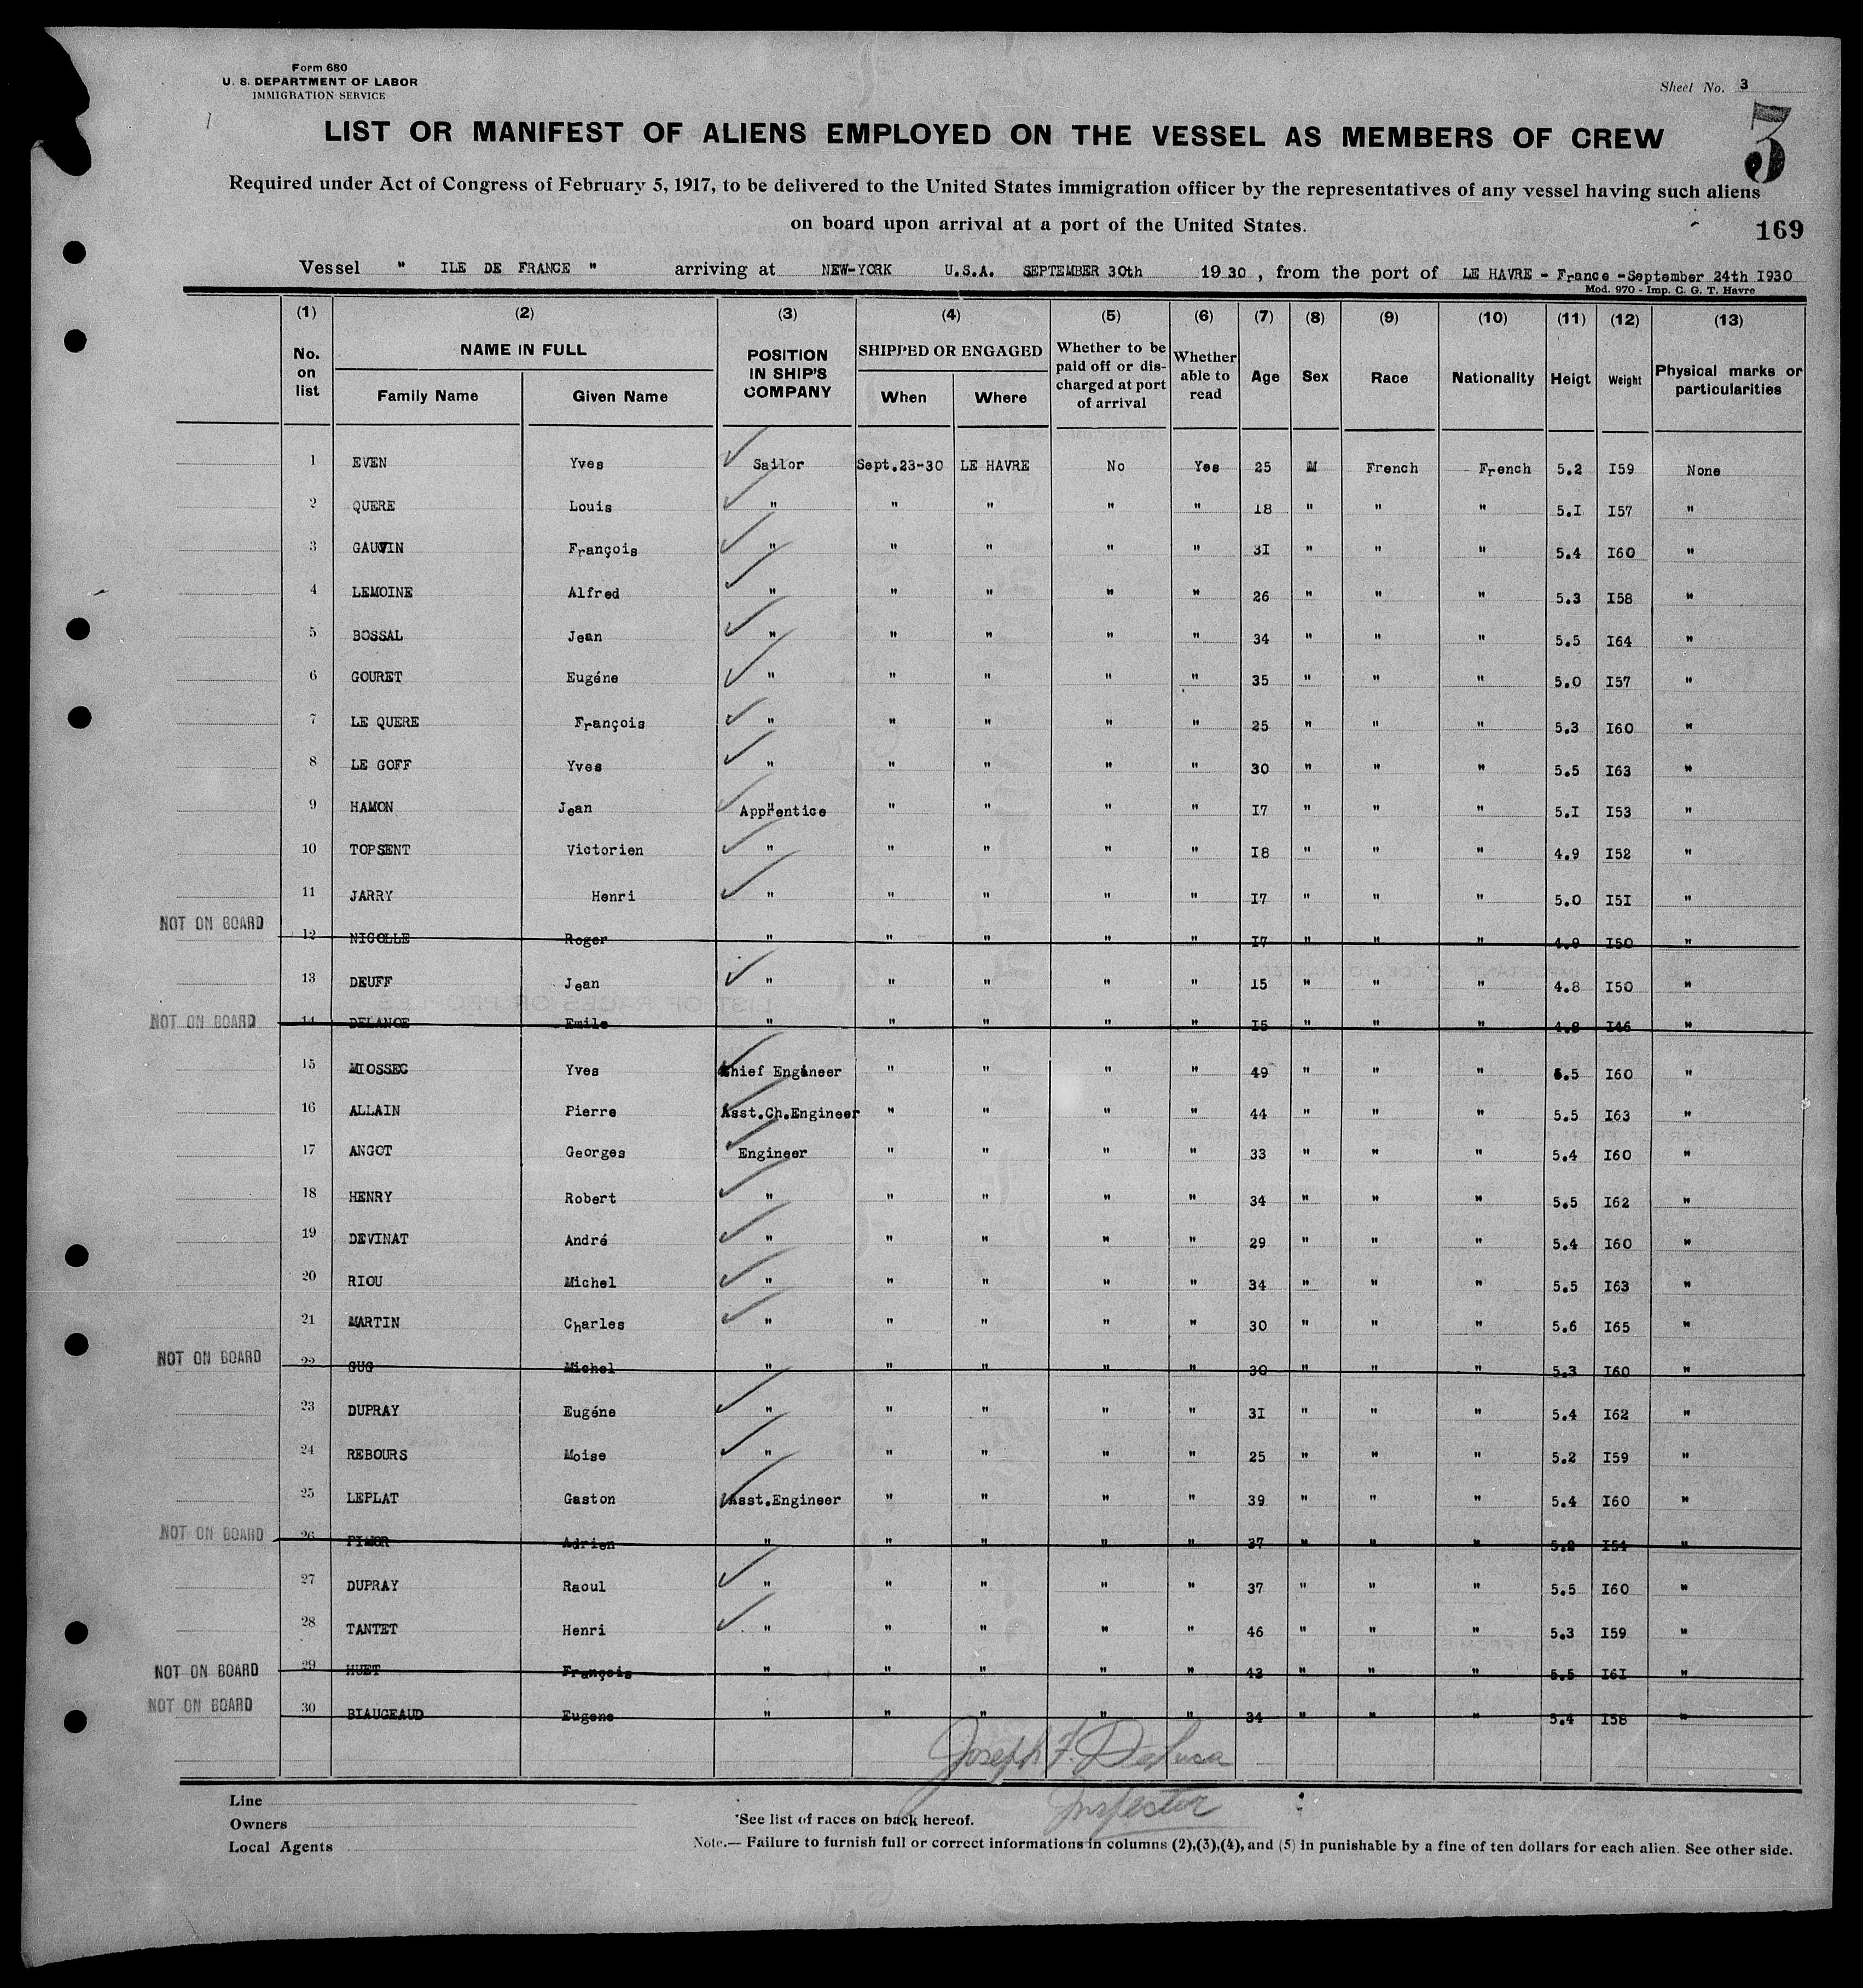 Form 680
U. S. DEPARTMENT OF LABOR
IMMIGRATION SERVICE
Sheet No. 3
3
LIST OR MANIFEST OF ALIENS EMPLOYED ON THE VESSEL AS MEMBERS OF CREW
Required under Act of Congress of February 5, 1917, to be delivered to the United States immigration officer by the representatives of any vessel having such aliens
on board upon arrival at a port of the United States.
169
Vessel " ILE DE FRANCE " arriving at NEW-YORK U.S.A. SEPTEMBER 30th 19 30 , from the port of LE HAVRE - France -September 24th I930
Mod. 970 - Imp. C. G. T. Havre
(1) (2) (3) (4) (5) (6) (7) (8) (9) (10) (11) (12) (13)
No. on list NAME IN FULL Family Name Given Name POSITION IN SHIP'S COMPANY SHIPPED OR ENGAGED When Where Whether to be paid off or discharged at port of arrival Whether able to read Age Sex Race Nationality Heigt Weight Physical marks or particularities
1 EVEN Yves Sailor Sept.23-30 LE HAVRE No Yes 25 M French French 5.2 I59 None
2 QUERE Louis " " " " " 18 " " " 5.I I57 "
3 GAUVIN François " " " " " 3I " " " 5.4 I60 "
4 LEMOINE Alfred " " " " " 26 " " " 5.3 I58 "
5 BOSSAL Jean " " " " " 34 " " " 5.5 I64 "
6 GOURET Eugéne " " " " " 35 " " " 5.0 I57 "
7 LE QUERE François " " " " " 25 " " " 5.3 I60 "
8 LE GOFF Yves " " " " " 30 " " " 5.5 I63 "
9 HAMON Jean Apprentice " " " " I7 " " " 5.I I53 "
10 TOPSENT Victorien " " " " " I8 " " " 4.9 I52 "
11 JARRY Henri " " " " " I7 " " " 5.0 I5I "
NOT ON BOARD 12 NICOLLE Roger " " " " " I7 " " " 4.9 I50 "
13 DEUFF Jean " " " " " I5 " " " 4.8 I50 "
NOT ON BOARD 14 DELANOE Emile " " " " " I5 " " " 4.8 I46 "
15 MIOSSEC Yves Chief Engineer " " " " 49 " " " 5.5 I60 "
16 ALLAIN Pierre Asst.Ch.Engineer " " " " 44 " " " 5.5 I63 "
17 ANGOT Georges Engineer " " " " 33 " " " 5.4 I60 "
18 HENRY Robert " " " " " 34 " " " 5.5 I62 "
19 DEVINAT André " " " " " 29 " " " 5.4 I60 "
20 RIOU Michel " " " " " 34 " " " 5.5 I63 "
21 MARTIN Charles " " " " " 30 " " " 5.6 I65 "
NOT ON BOARD 22 GUG Michel " " " " " 30 " " " 5.3 I60 "
23 DUPRAY Eugéne " " " " " 3I " " " 5.4 I62 "
24 REBOURS Moise " " " " " 25 " " " 5.2 I59 "
25 LEPLAT Gaston Asst.Engineer " " " " 39 " " " 5.4 I60 "
NOT ON BOARD 26 PIMOR Adrien " " " " " 37 " " " I54 "
27 DUPRAY Raoul " " " " " 37 " " " 5.5 I60 "
28 TANTET Henri " " " " " 46 " " " 5.3 I59 "
NOT ON BOARD 29 HUET François " " " " " 43 " " " 5.5 I6I "
NOT ON BOARD 30 BIAUGEAUD Eugene " " " " " 34 " " " 5.4 I58 "
Joseph F. DeLuca
Inspector
Line
Owners
Local Agents
*See list of races on back hereof.
Note.— Failure to furnish full or correct informations in columns (2),(3),(4), and (5) in punishable by a fine of ten dollars for each alien. See other side.